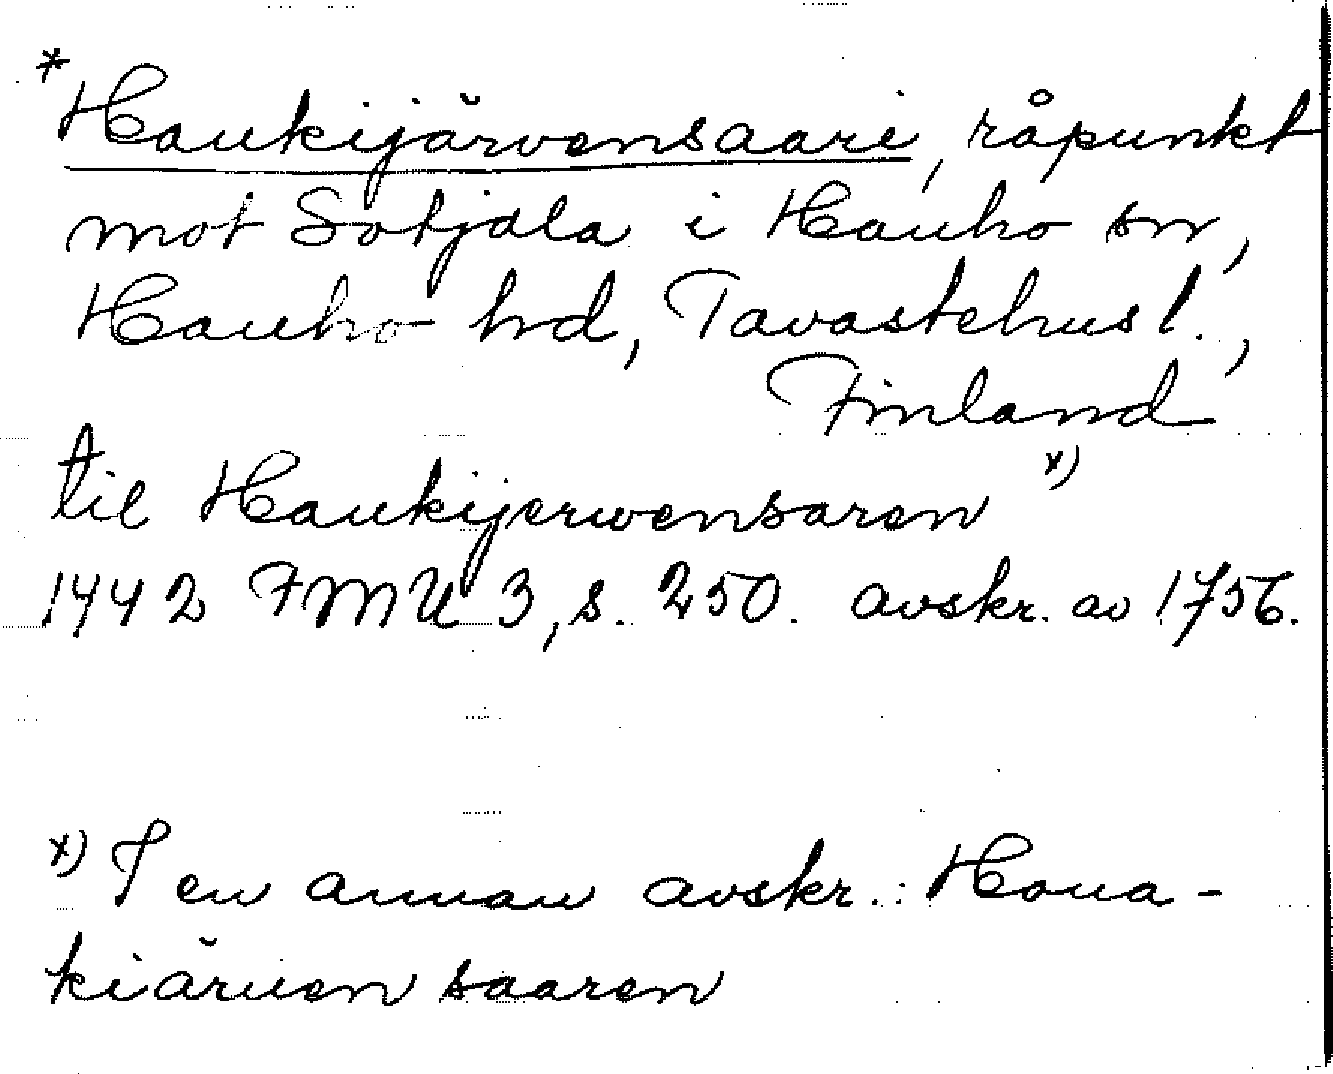 *Haukijärvensaari, råpunkt
mot Sotjala i Hauho sn,
Hauho hd, Tavastehus l.,
Finland
til Haukijerwensaren x)
1442 FMU 3, s. 250. avskr. av 1756.
x) I en annan avskr.: Houa-
kiäruen saaren